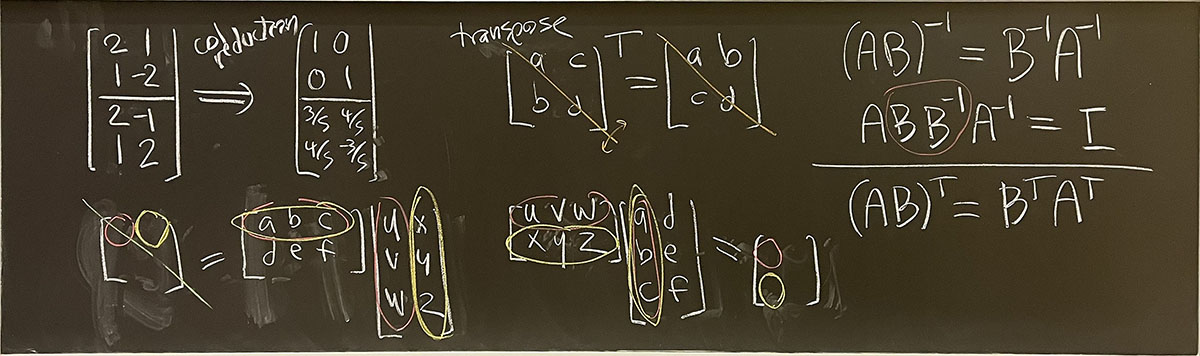 2 1
1 -2
2 -1
1 2
col reduction
⟹
1 0
0 1
3/5 4/5
4/5 -3/5
transpose
[a c
b d]ᵀ = [a b
c d]
(AB)⁻¹ = B⁻¹A⁻¹
ABB⁻¹A⁻¹ = I
(AB)ᵀ = BᵀAᵀ
[ ] = [a b c
d e f] [u x
v y
w z]
[u v w
x y z] [a d
b e
c f] = [ ]